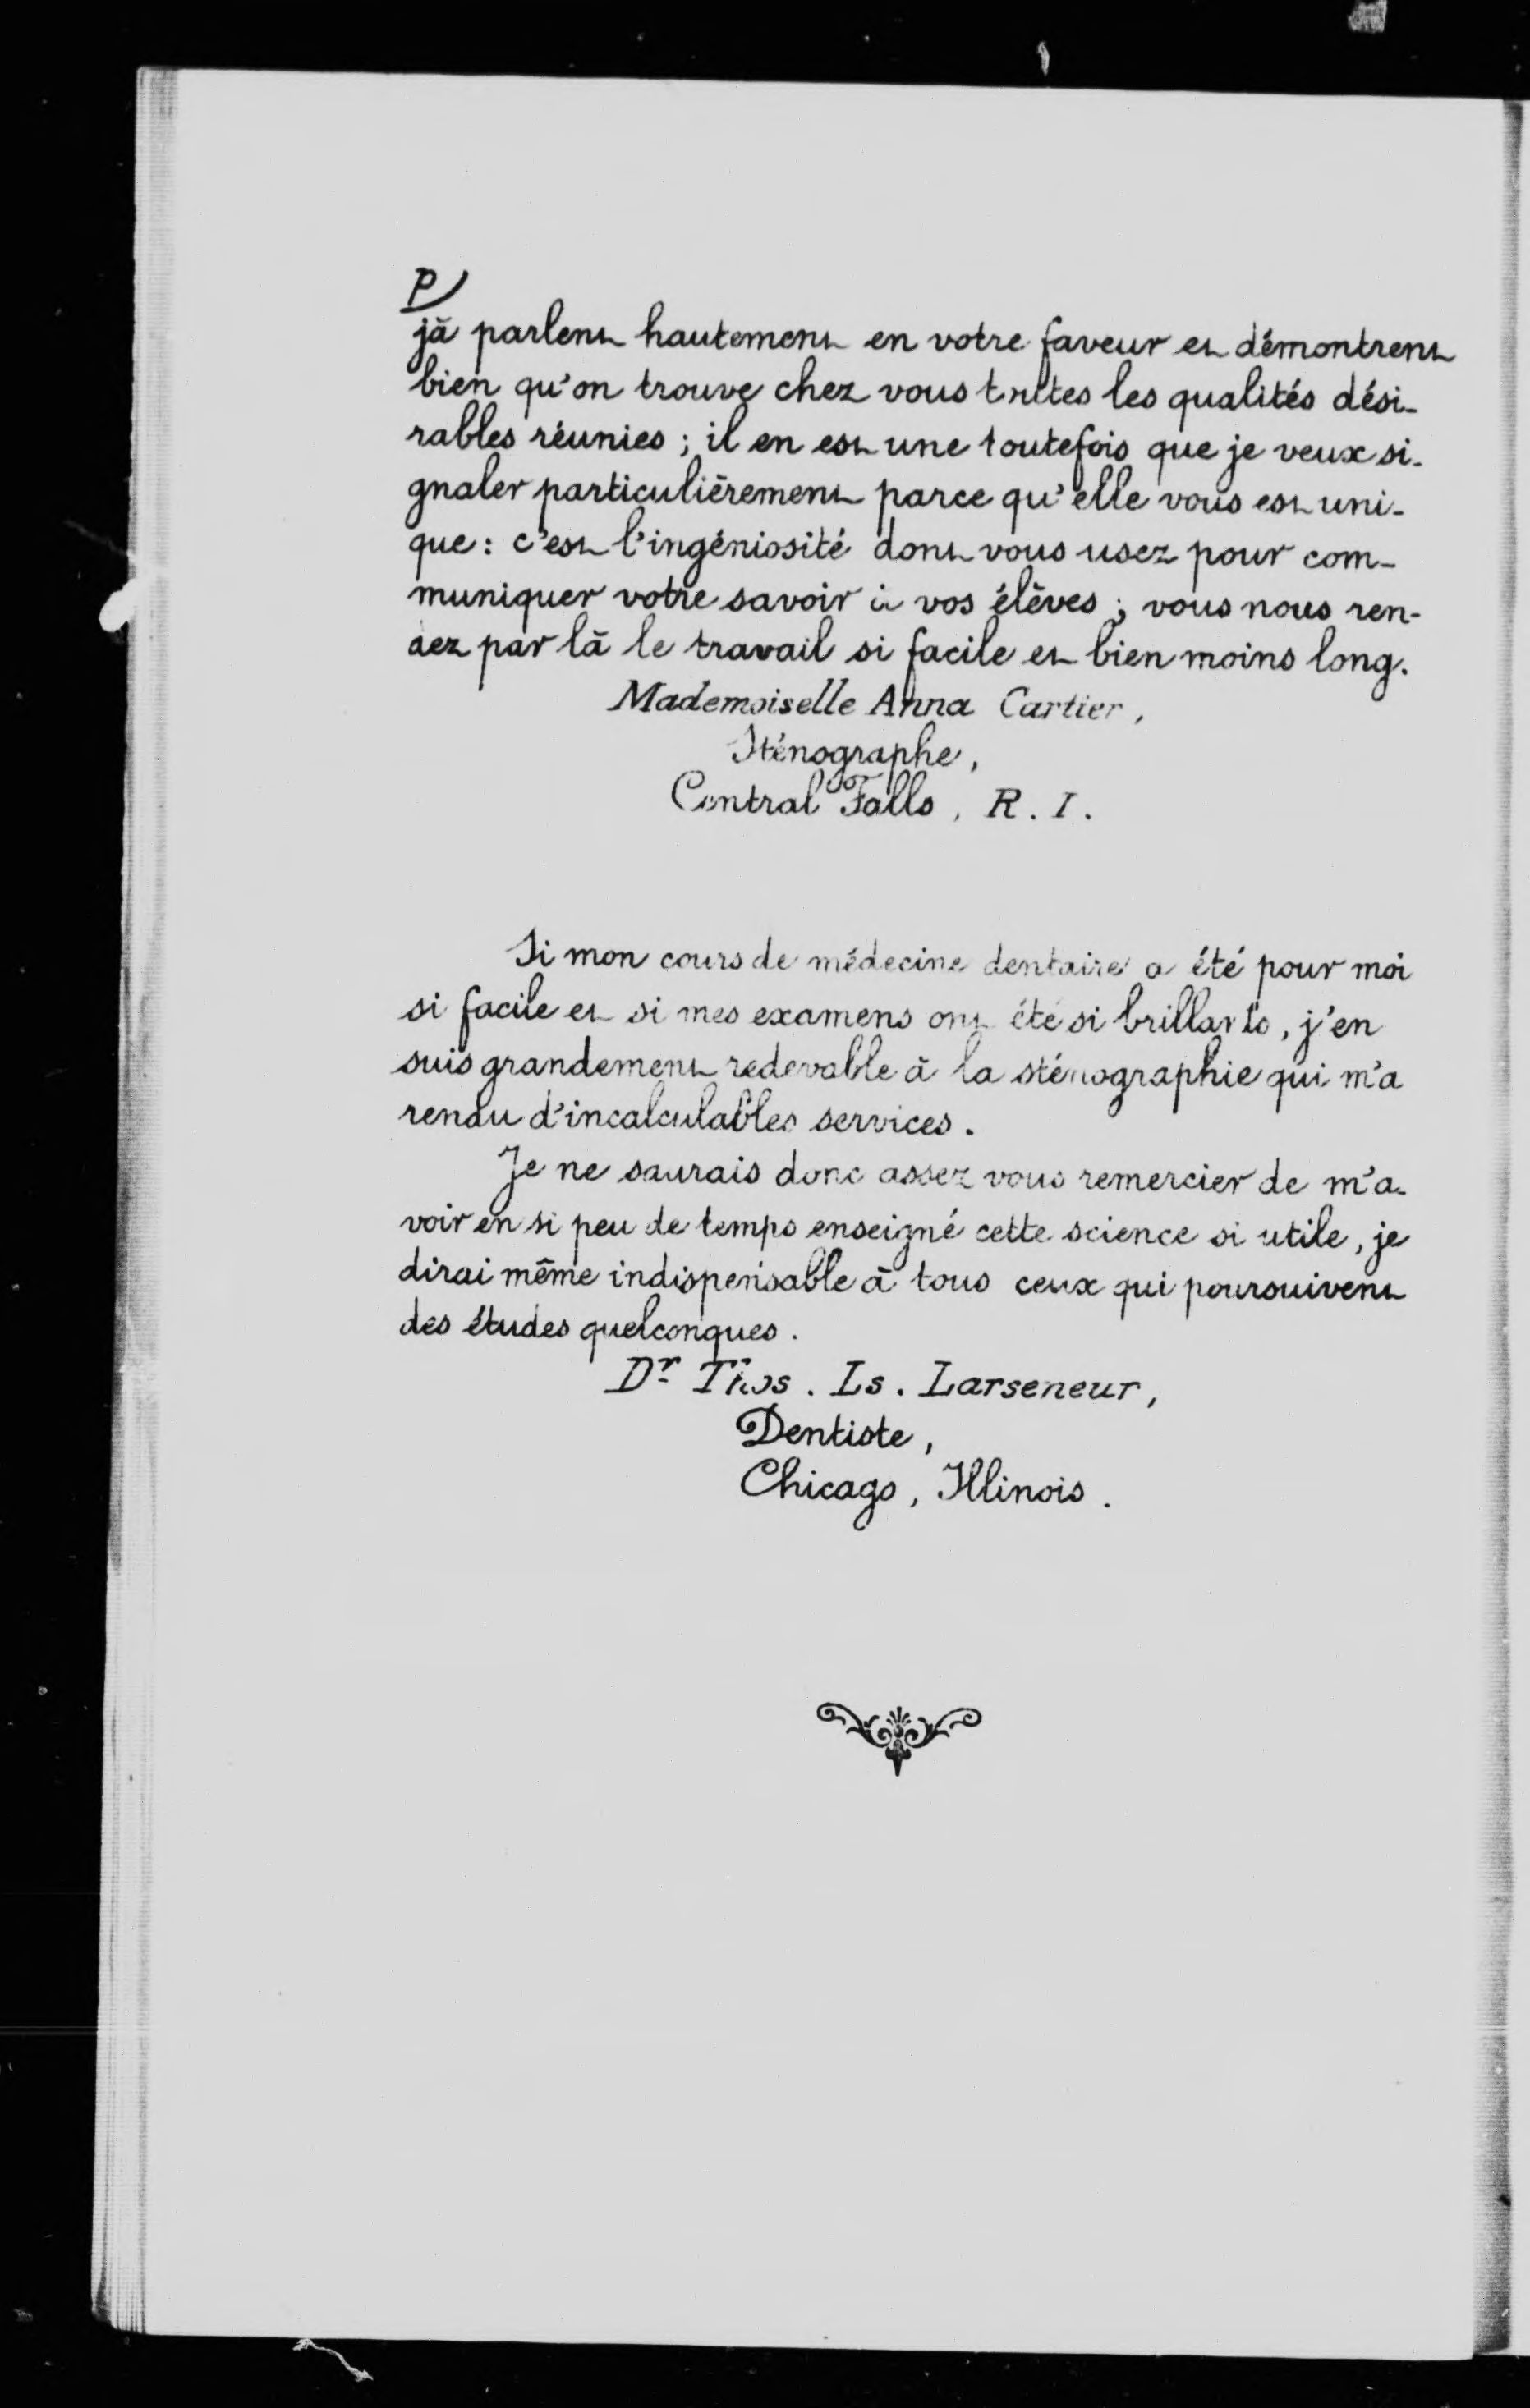 P)
jà parlent hautement en votre faveur et démontrent
bien qu'on trouve chez vous toutes les qualités dési-
rables réunies ; il en est une toutefois que je veux si-
gnaler particulièrement parce qu'elle vous est uni-
que : c'est l'ingéniosité dont vous usez pour com-
muniquer votre savoir à vos élèves ; vous nous ren-
dez par là le travail si facile et bien moins long.
Mademoiselle Anna Cartier,
Sténographe,
Central Falls, R. I.
Si mon cours de médecine dentaire a été pour moi
si facile et si mes examens ont été si brillants, j'en
suis grandement redevable à la sténographie qui m'a
rendu d'incalculables services.
Je ne saurais donc assez vous remercier de m'a-
voir en si peu de temps enseigné cette science si utile, je
dirai même indispensable à tous ceux qui poursuivent
des études quelconques.
Dr Thos. Ls. Larseneur,
Dentiste,
Chicago, Illinois.